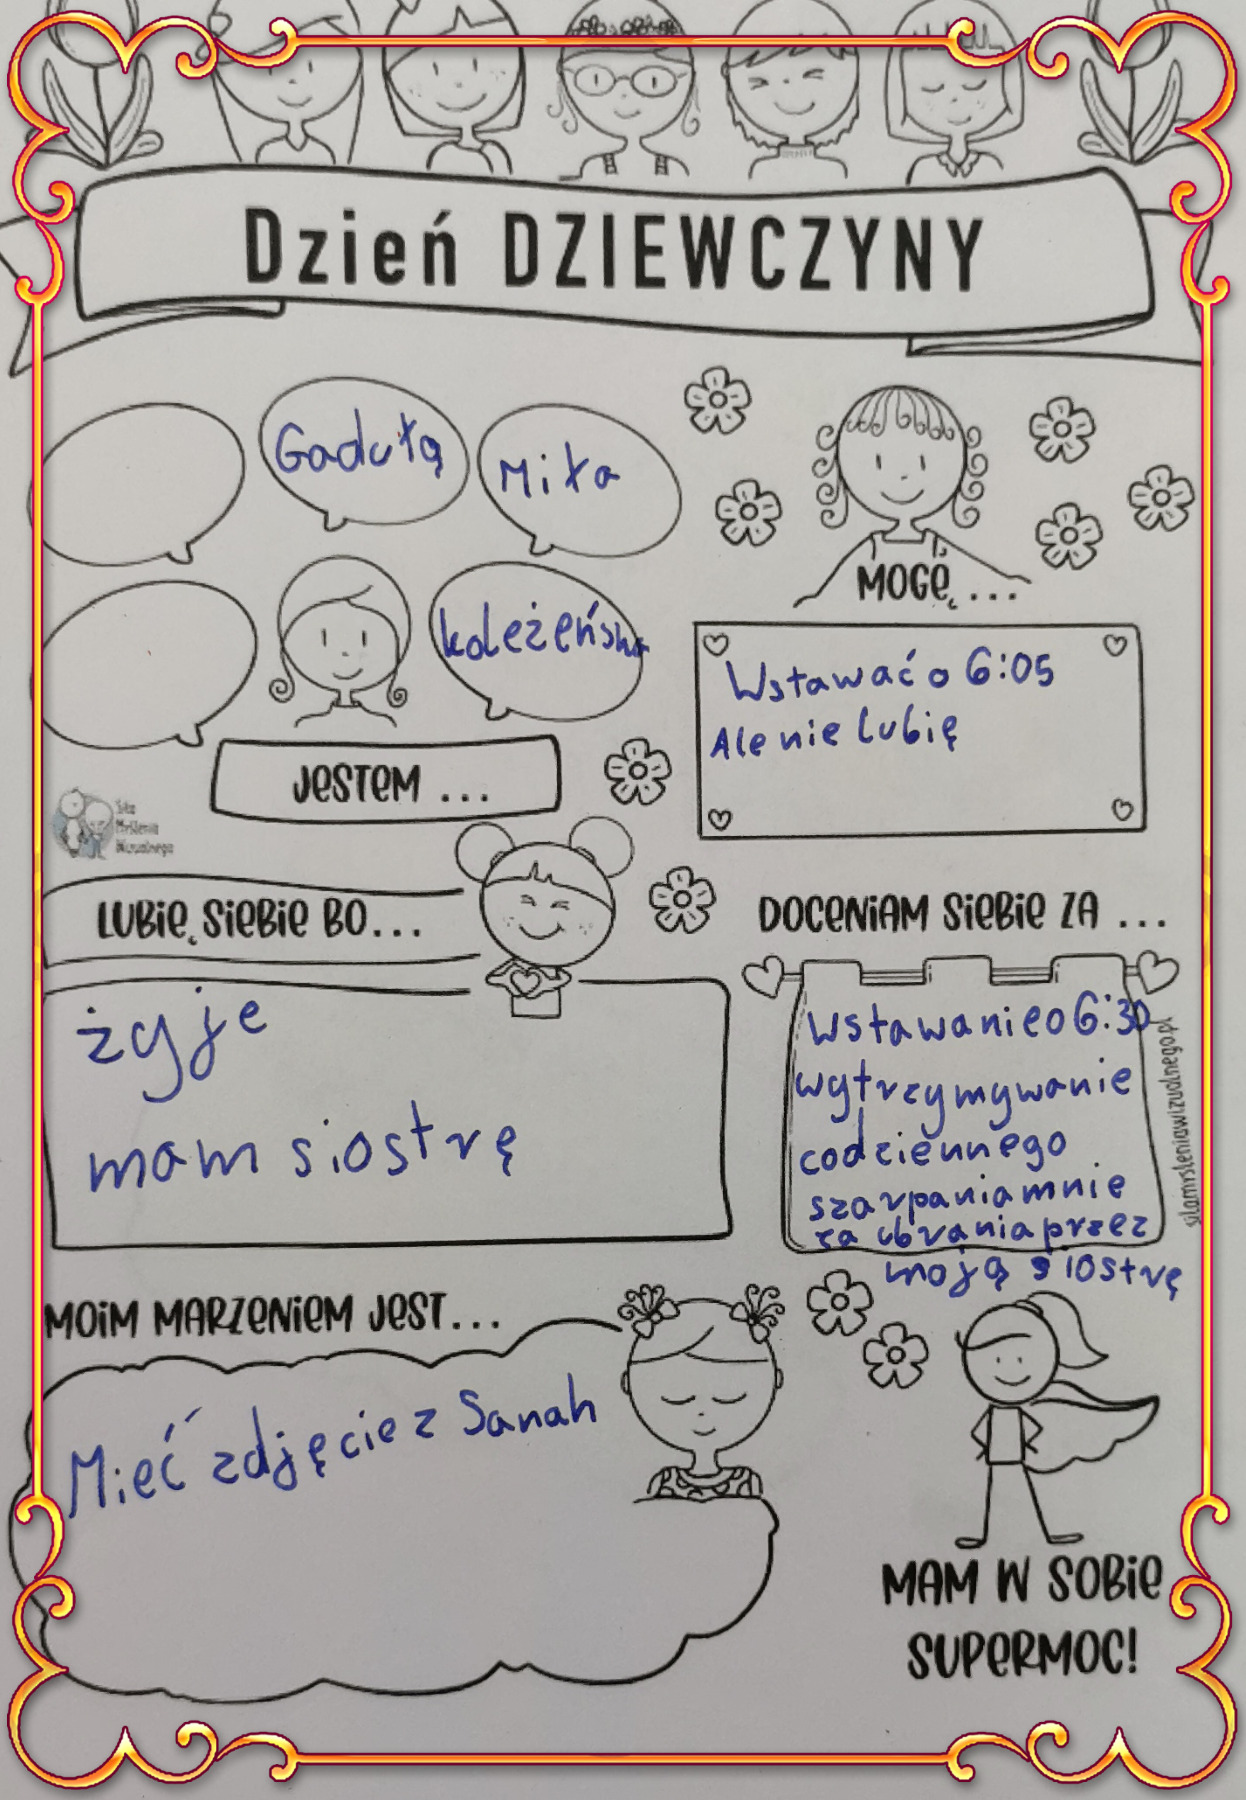 Dzień DZIEWCZYNY
Gadułą
Miła
koleżeńska
JESTEM ...
MOGĘ ...
Wstawać o 6:05
Ale nie lubię
Siła
Myślenia
Wizualnego
LUBIĘ SIEBIE BO...
żyje
mam siostrę
DOCENIAM SIEBIE ZA ...
Wstawanie o 6:30
wytrzymywanie
codziennego
szarpania mnie
za ubrania przez
moją siostrę
silamysleniawizualnego.pl
MOIM MARZENIEM JEST...
Mieć zdjęcie z Sanah
MAM W SOBIE
SUPERMOC!